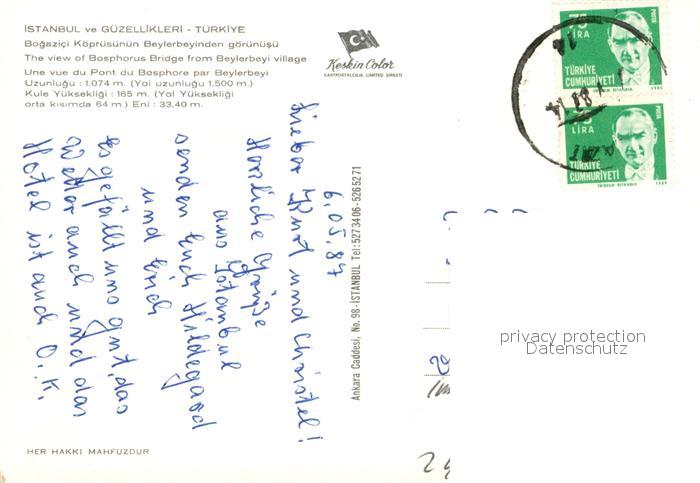 İSTANBUL ve GÜZELLİKLERİ - TÜRKİYE
Boğaziçi Köprüsünün Beylerbeyinden görünüşü
The view of Bosphorus Bridge from Beylerbeyi village
Une vue du Pont du Bosphore par Beylerbeyi
Uzunluğu : 1.074 m. (Yol uzunluğu 1.500 m.)
Kule Yüksekliği : 165 m. (Yol Yüksekliği
orta kısımda 64 m.) Eni : 33,40 m.
Keskin Color
KARTPOSTALCILIK LIMITED ŞİRKETİ
6.05.87
Lieber Kurt und Christel!
Herzliche Grüße
aus Istanbul
senden Euch Hildegard
und Erich
Es gefällt uns gut, das
Wetter auch und das
Hotel ist auch O.K.
Ankara Caddesi, No. 98 - İSTANBUL Tel: 5273406 - 5265271
HER HAKKI MAHFUZDUR
75
LİRA
POSTA
TÜRKİYE
CUMHURİYETİ
75
LİRA
POSTA
TÜRKİYE
CUMHURİYETİ
privacy protection
Datenschutz